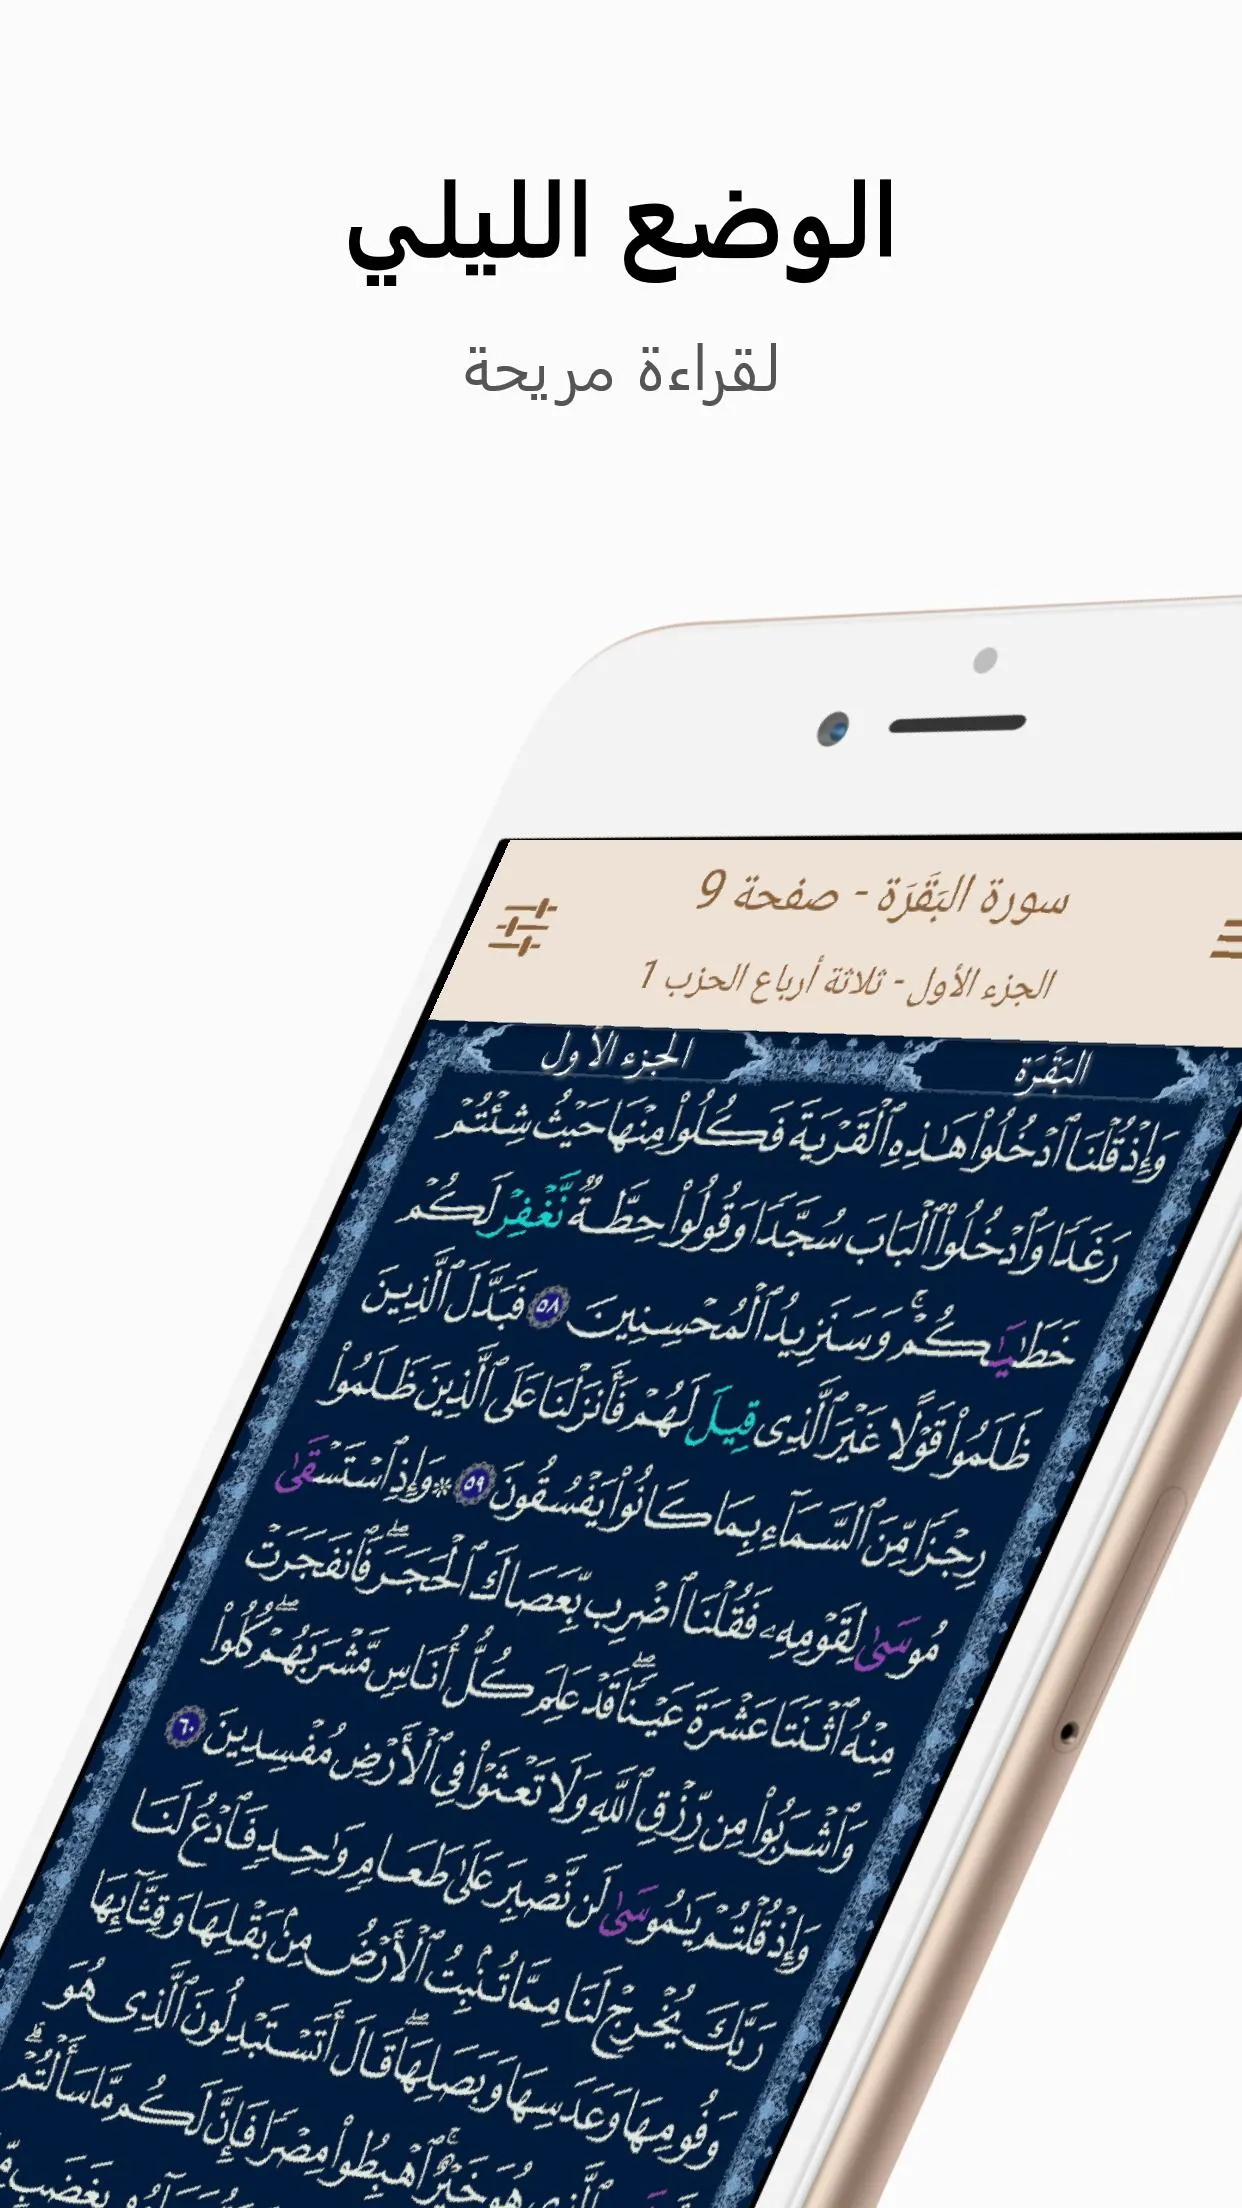 الوضع الليلي
لقراءة مريحة
سورة البَقَرَة - صفحة 9
الجزء الأول - ثلاثة أرباع الحزب 1
البَقَرَة
الجزء الأول
وَإِذْ قُلْنَا ٱدْخُلُوا۟ هَٰذِهِ ٱلْقَرْيَةَ فَكُلُوا۟ مِنْهَا حَيْثُ شِئْتُمْ
رَغَدًا وَٱدْخُلُوا۟ ٱلْبَابَ سُجَّدًا وَقُولُوا۟ حِطَّةٌ نَّغْفِرْ لَكُمْ
خَطَٰيَٰكُمْ ۚ وَسَنَزِيدُ ٱلْمُحْسِنِينَ ٥٨ فَبَدَّلَ ٱلَّذِينَ
ظَلَمُوا۟ قَوْلًا غَيْرَ ٱلَّذِى قِيلَ لَهُمْ فَأَنزَلْنَا عَلَى ٱلَّذِينَ ظَلَمُوا۟
رِجْزًا مِّنَ ٱلسَّمَآءِ بِمَا كَانُوا۟ يَفْسُقُونَ ٥٩ * وَإِذِ ٱسْتَسْقَىٰ
مُوسَىٰ لِقَوْمِهِۦ فَقُلْنَا ٱضْرِب بِّعَصَاكَ ٱلْحَجَرَ ۖ فَٱنفَجَرَتْ
مِنْهُ ٱثْنَتَا عَشْرَةَ عَيْنًا ۖ قَدْ عَلِمَ كُلُّ أُنَاسٍ مَّشْرَبَهُمْ ۖ كُلُوا۟
وَٱشْرَبُوا۟ مِن رِّزْقِ ٱللَّهِ وَلَا تَعْثَوْا۟ فِى ٱلْأَرْضِ مُفْسِدِينَ ٦٠
وَإِذْ قُلْتُمْ يَٰمُوسَىٰ لَن نَّصْبِرَ عَلَىٰ طَعَامٍ وَٰحِدٍ فَٱدْعُ لَنَا
رَبَّكَ يُخْرِجْ لَنَا مِمَّا تُنۢبِتُ ٱلْأَرْضُ مِنۢ بَقْلِهَا وَقِثَّآئِهَا
وَفُومِهَا وَعَدَسِهَا وَبَصَلِهَا ۖ قَالَ أَتَسْتَبْدِلُونَ ٱلَّذِى هُوَ
ٱلَّذِى هُوَ خَيْرٌ ۚ ٱهْبِطُوا۟ مِصْرًا فَإِنَّ لَكُم مَّا سَأَلْتُمْ ۗ
بِغَضَبٍ